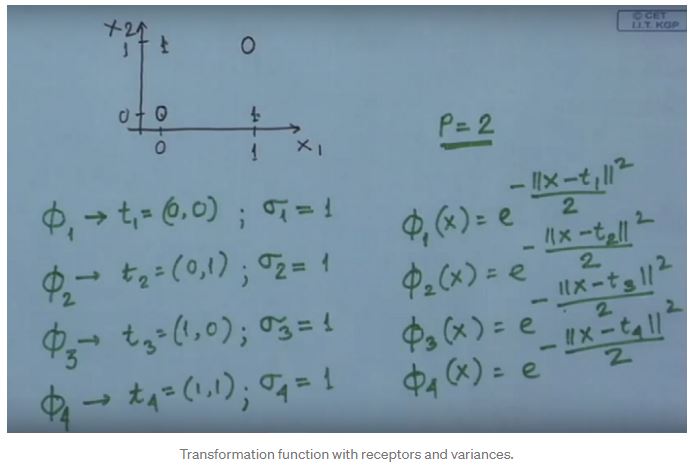 © CET
I.I.T. KGP
x2
1 1 0
0 0 1
0 1 x1
P = 2
ϕ1 → t1 = (0,0) ; σ1 = 1
ϕ2 → t2 = (0,1) ; σ2 = 1
ϕ3 → t3 = (1,0) ; σ3 = 1
ϕ4 → t4 = (1,1) ; σ4 = 1
ϕ1(x) = e^-||x-t1||²/2
ϕ2(x) = e^-||x-t2||²/2
ϕ3(x) = e^-||x-t3||²/2
ϕ4(x) = e^-||x-t4||²/2
Transformation function with receptors and variances.